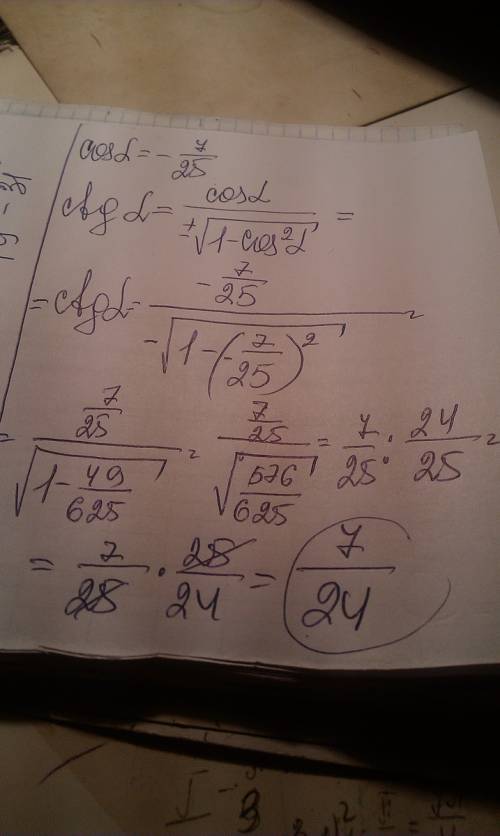 cosα = - 7/25
ctg α = cosα / ±√(1-cos²α) =
= ctgα = (- 7/25) / -√(1-(-7/25)²) =
= (7/25) / √(1- 49/625) = (7/25) / √(576/625) = 7/25 : 24/25 =
= 7/25 · 25/24 = 7/24